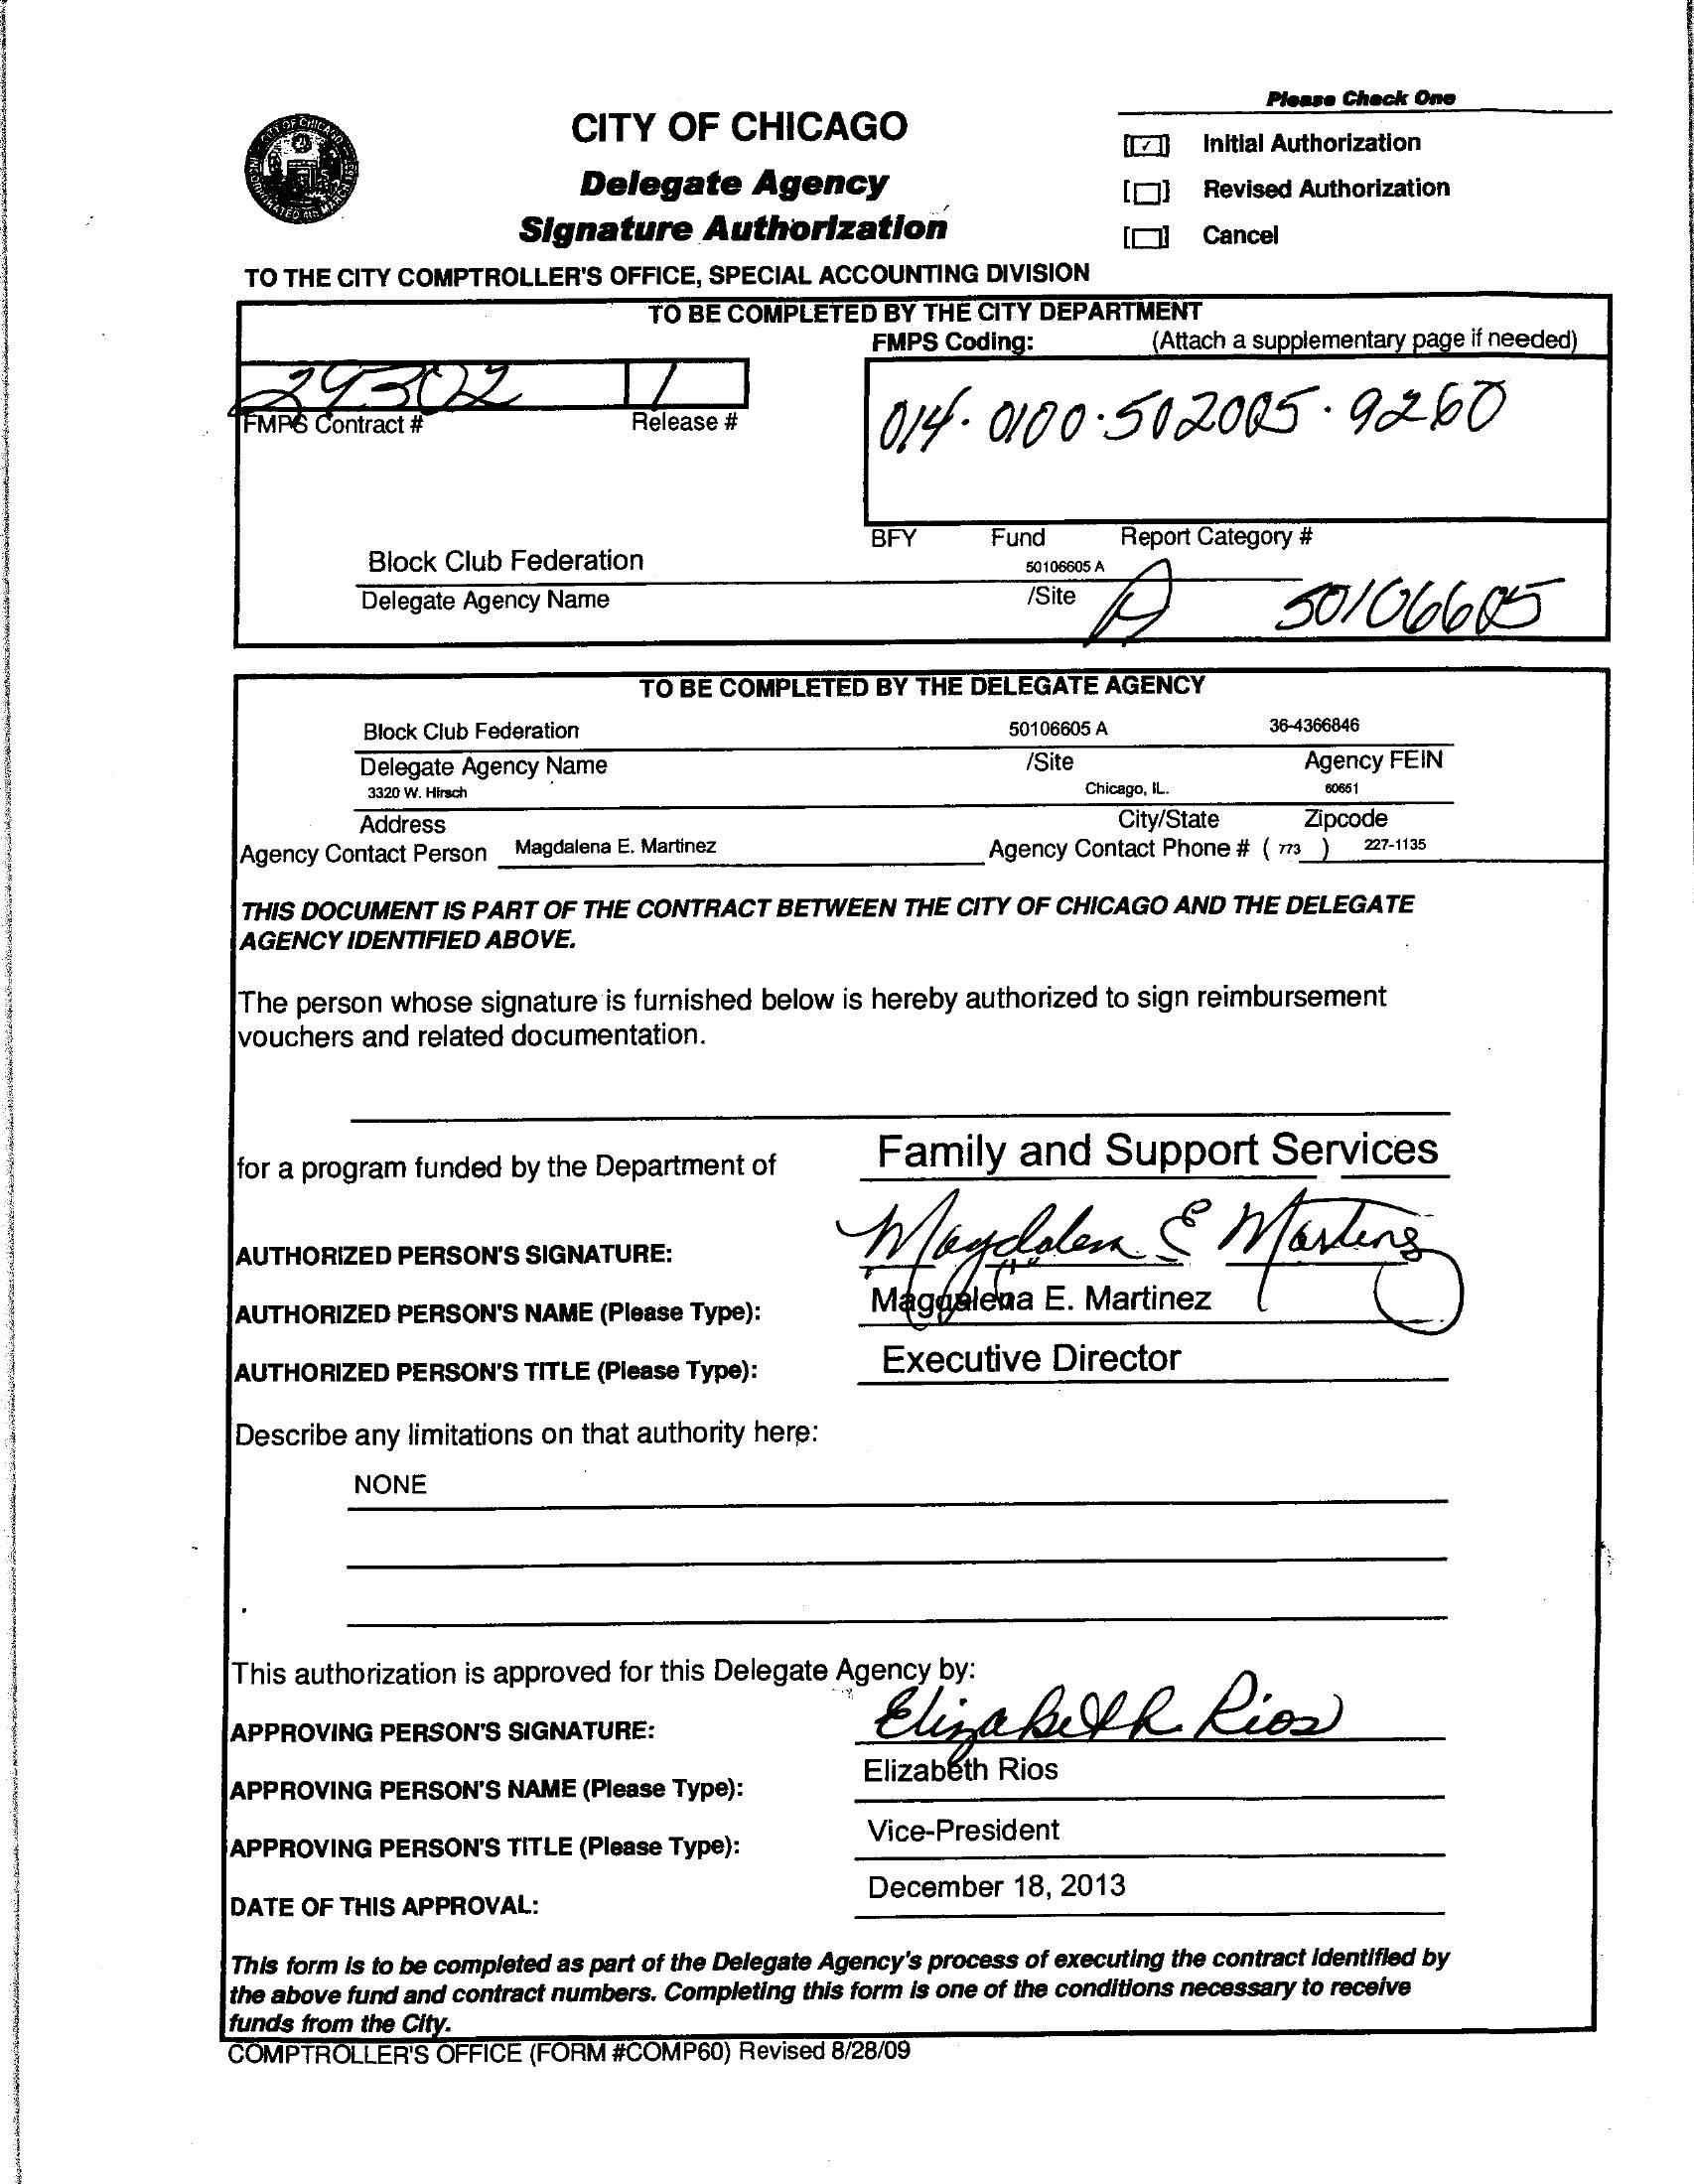 Please Check One
CITY OF CHICAGO
Delegate Agency
Signature Authorization
[✓] Initial Authorization
[ ] Revised Authorization
[ ] Cancel
TO THE CITY COMPTROLLER'S OFFICE, SPECIAL ACCOUNTING DIVISION
TO BE COMPLETED BY THE CITY DEPARTMENT
FMPS Coding: (Attach a supplementary page if needed)
29302 1
FMPS Contract # Release #
014-0100-502005-9260
BFY Fund Report Category #
Block Club Federation 50106605 A
Delegate Agency Name /Site A 50106605
TO BE COMPLETED BY THE DELEGATE AGENCY
Block Club Federation 50106605 A 36-4366846
Delegate Agency Name /Site Agency FEIN
3320 W. Hirsch Chicago, IL. 60651
Address City/State Zipcode
Agency Contact Person Magdalena E. Martinez Agency Contact Phone # ( 773 ) 227-1135
THIS DOCUMENT IS PART OF THE CONTRACT BETWEEN THE CITY OF CHICAGO AND THE DELEGATE
AGENCY IDENTIFIED ABOVE.
The person whose signature is furnished below is hereby authorized to sign reimbursement
vouchers and related documentation.
for a program funded by the Department of Family and Support Services
AUTHORIZED PERSON'S SIGNATURE: Magdalena E Martinez
AUTHORIZED PERSON'S NAME (Please Type): Magdalena E. Martinez
AUTHORIZED PERSON'S TITLE (Please Type): Executive Director
Describe any limitations on that authority here:
NONE
This authorization is approved for this Delegate Agency by:
APPROVING PERSON'S SIGNATURE: Elizabeth Rios
APPROVING PERSON'S NAME (Please Type): Elizabeth Rios
APPROVING PERSON'S TITLE (Please Type): Vice-President
DATE OF THIS APPROVAL: December 18, 2013
This form is to be completed as part of the Delegate Agency's process of executing the contract identified by
the above fund and contract numbers. Completing this form is one of the conditions necessary to receive
funds from the City.
COMPTROLLER'S OFFICE (FORM #COMP60) Revised 8/28/09